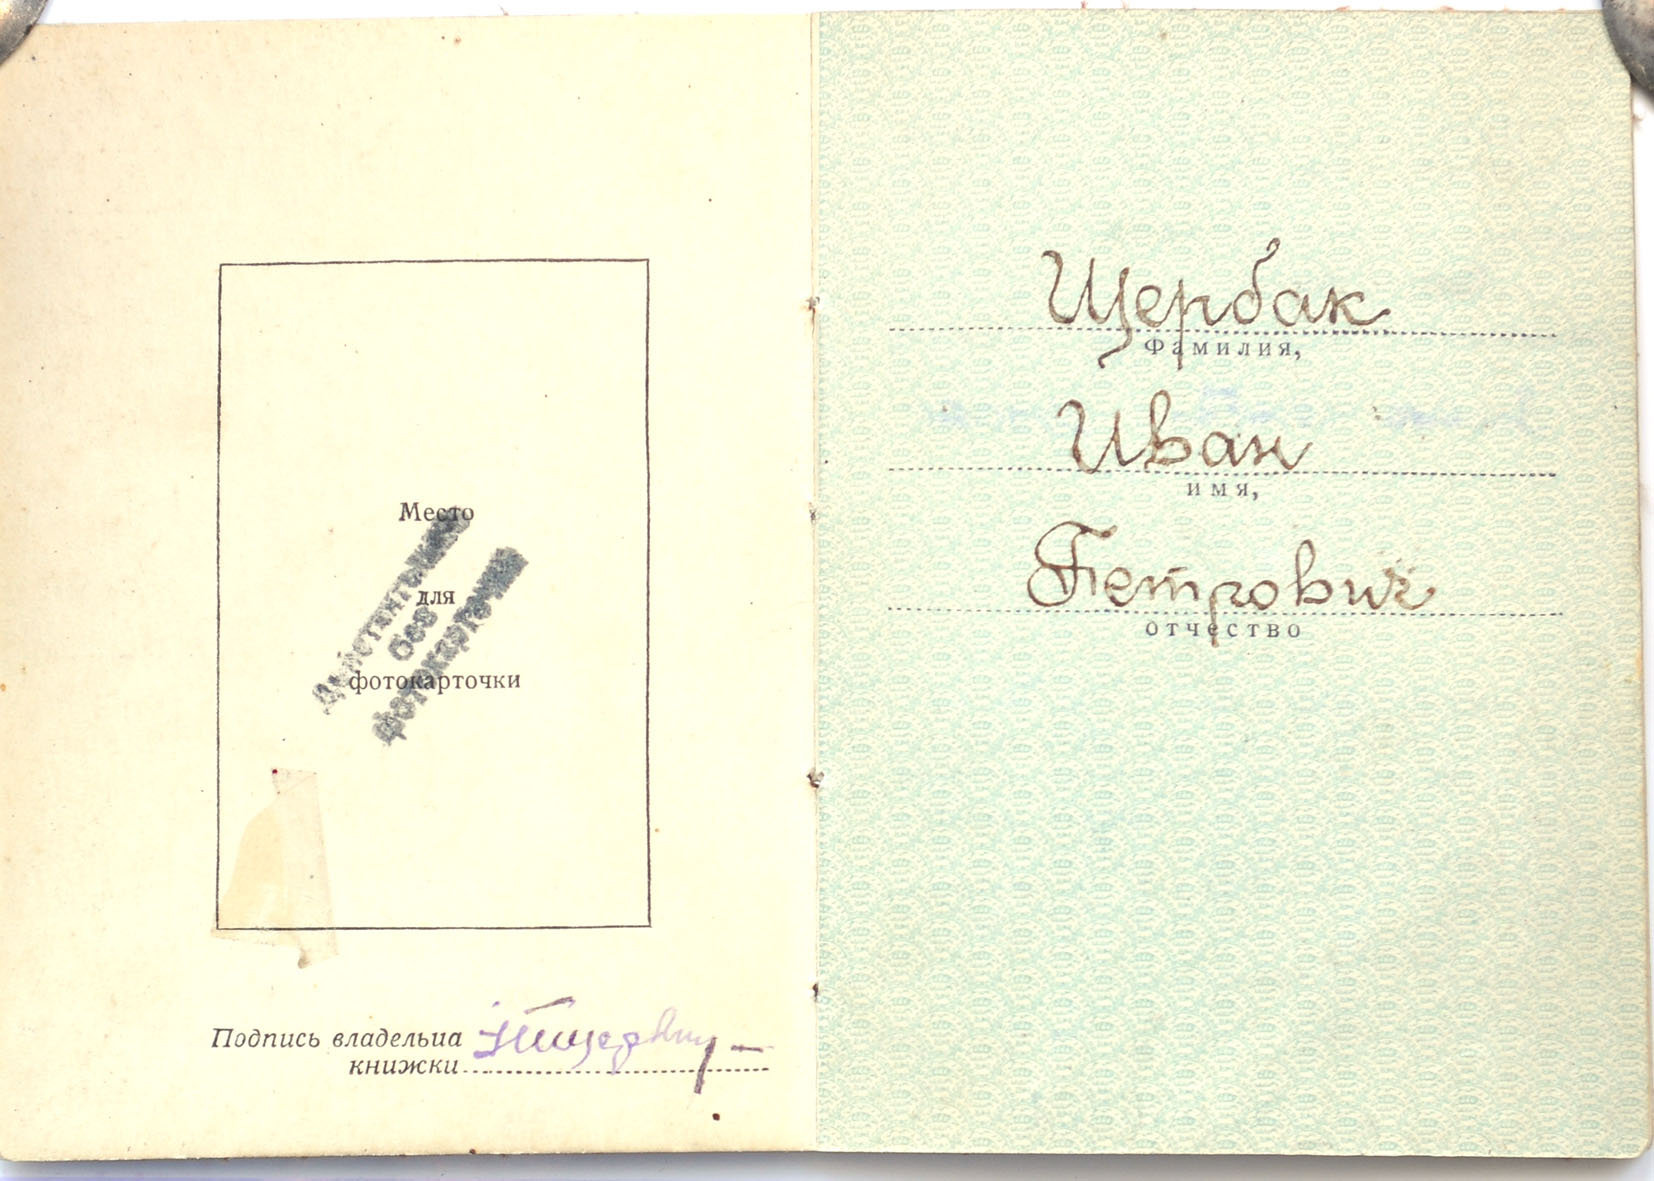 Место
для
фотокарточки
Действительно
без
фотокарточки
Подпись владельца
книжки
Щербак
Фамилия,
Иван
имя,
Петрович
отчество